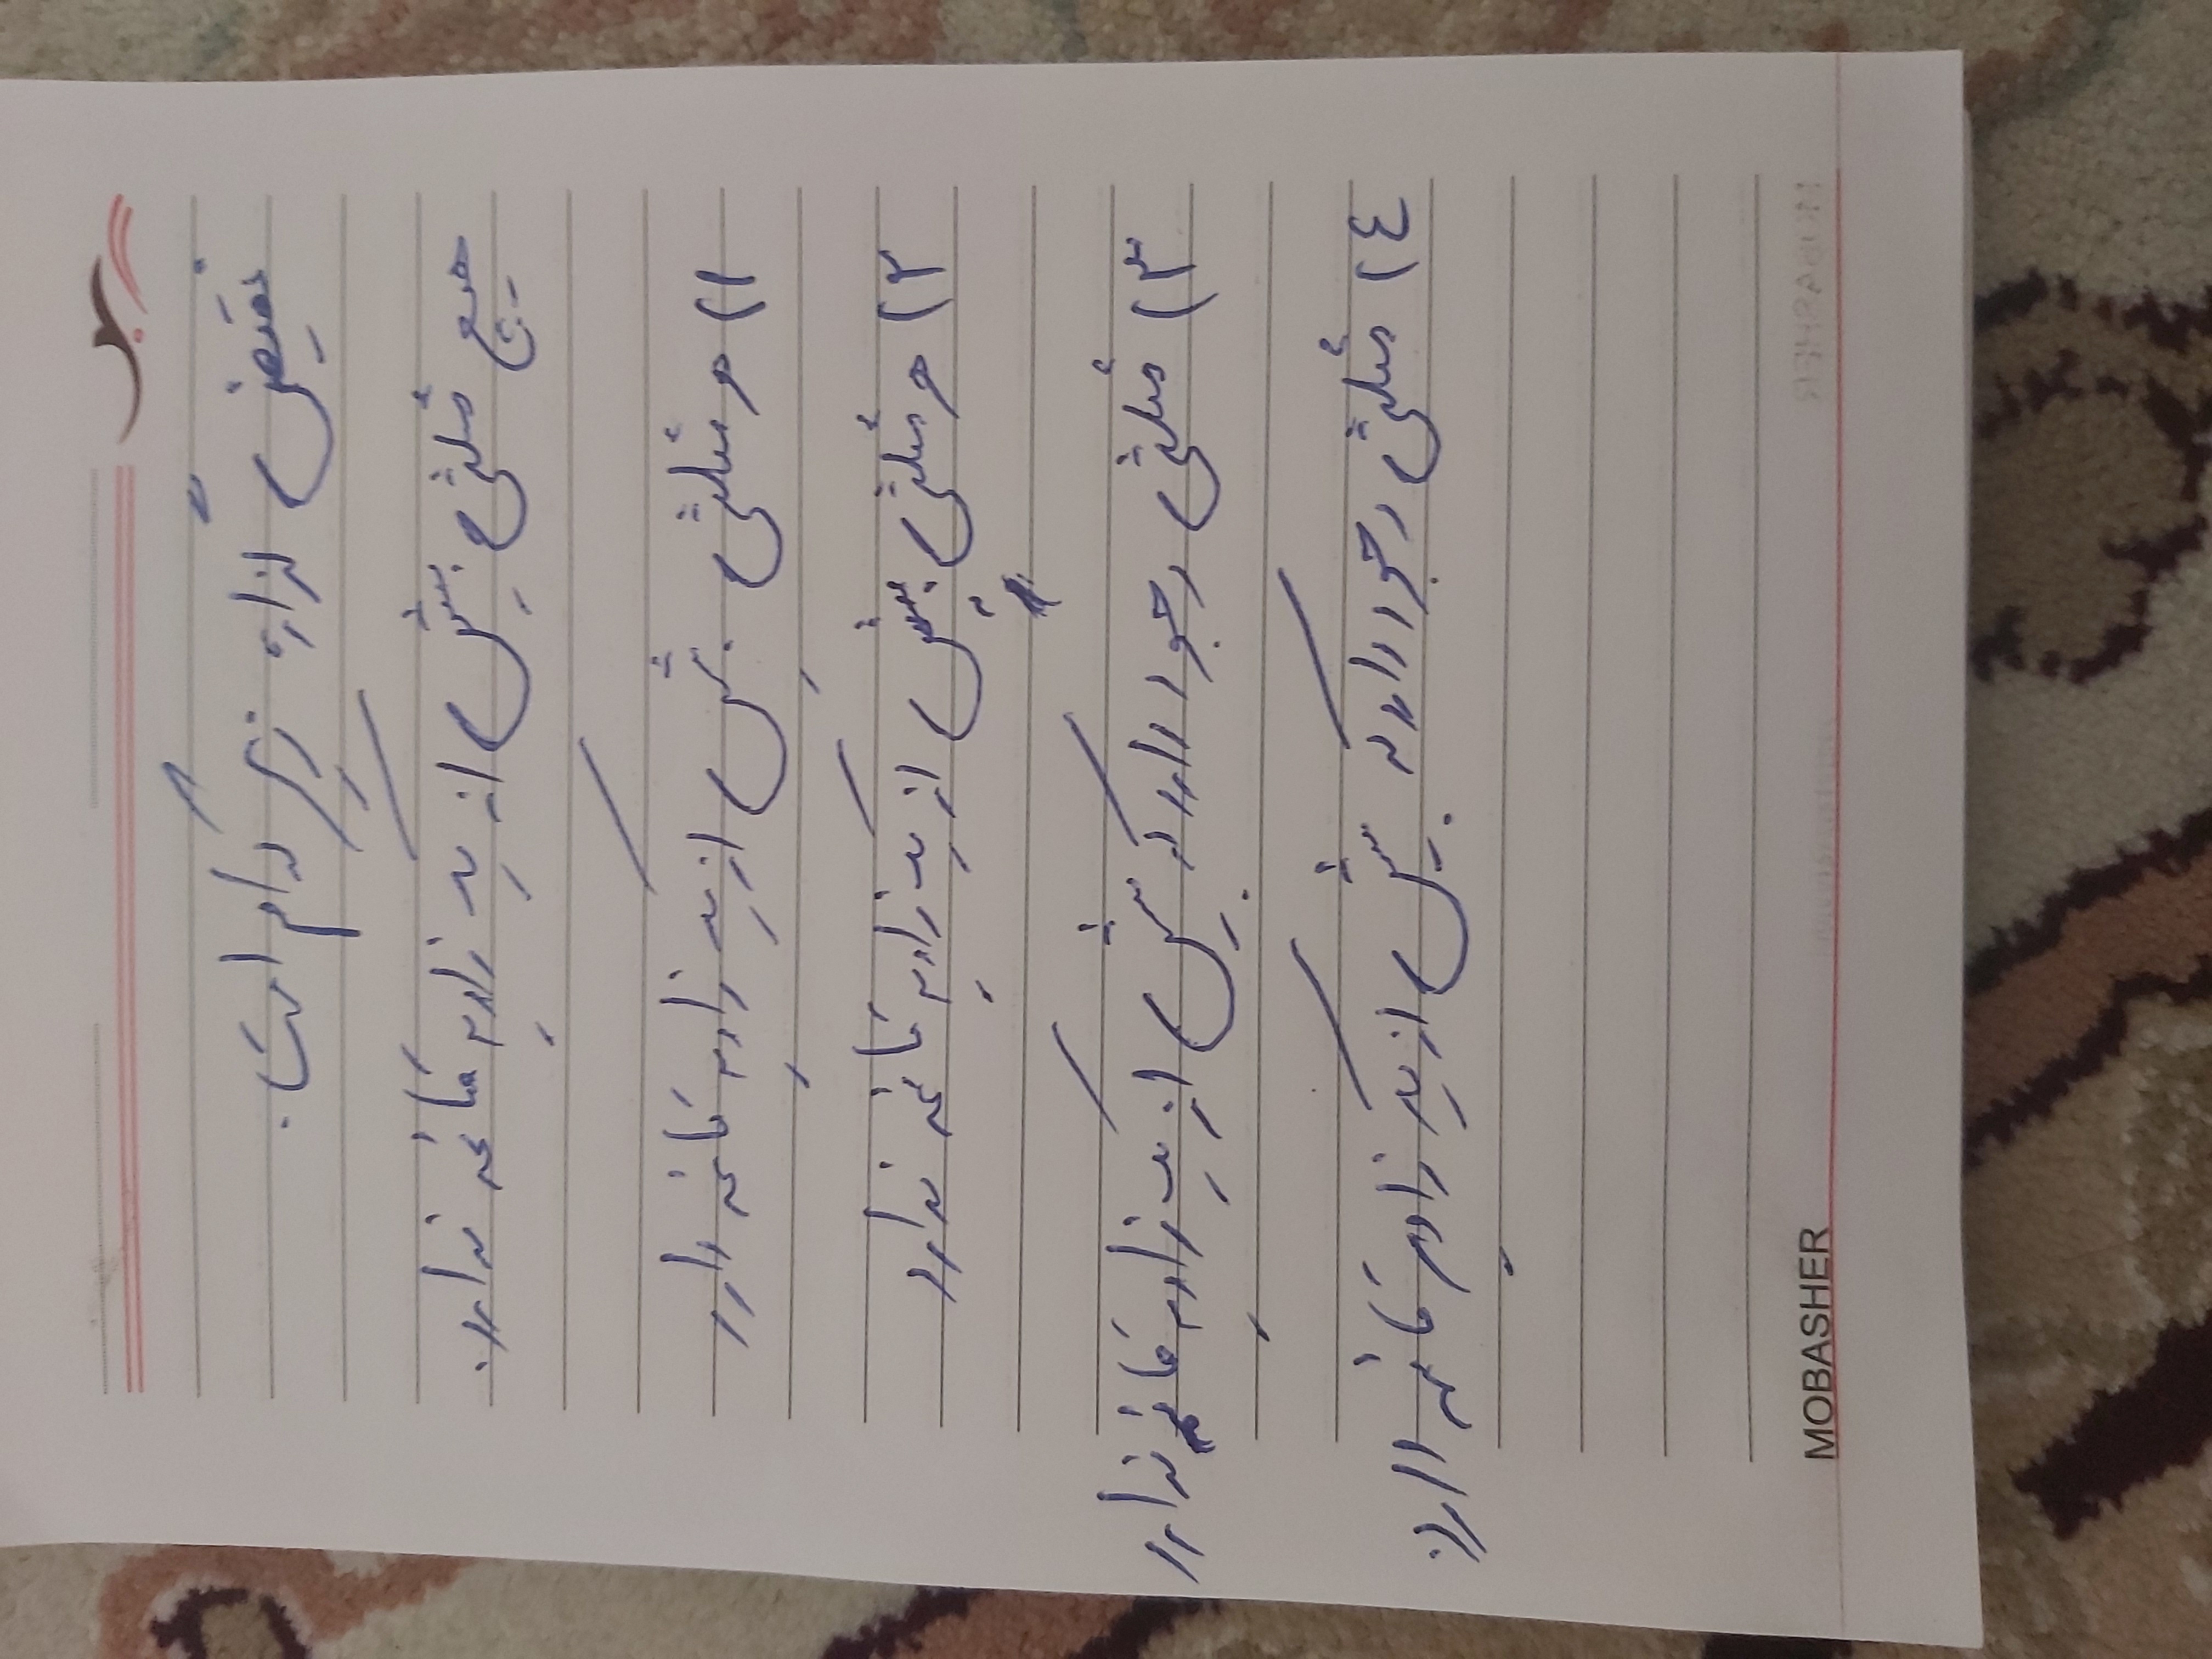 نقیض گزاره زیر کدام است.
هیچ مثلثی بیش از یک زاویه قائمه ندارد.
۱) هر مثلثی بیش از یک زاویه قائمه دارد
۲) هر مثلثی بیش از یک زاویه قائمه ندارد
۳) مثلثی وجود دارد که بیش از یک زاویه قائمه ندارد
۴) مثلثی وجود دارد که بیش از یک زاویه قائمه دارد.
MOBASHER